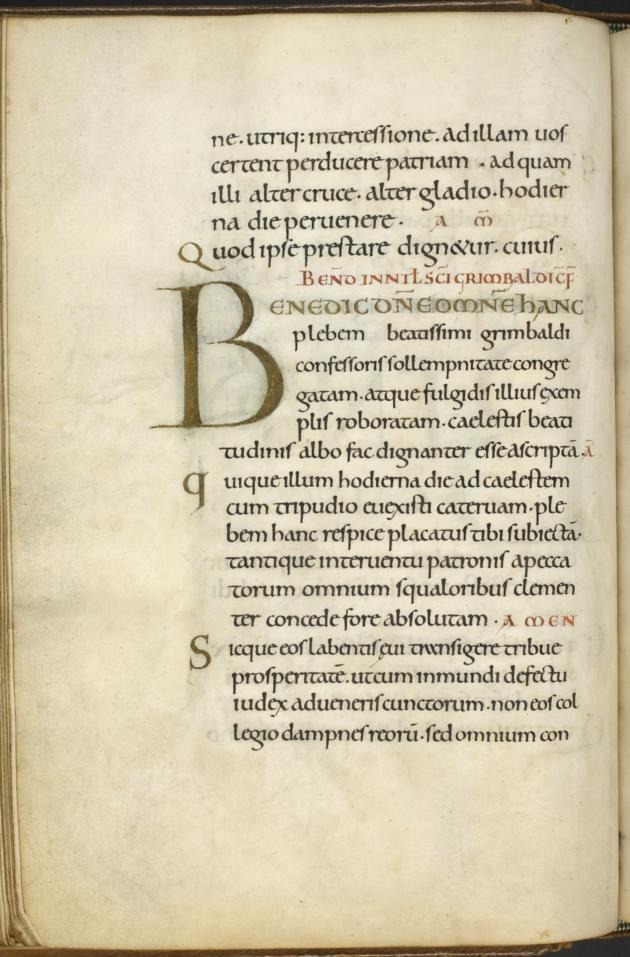 ne. utriq: intercessione. ad illam uos
certent perducere patriam . ad quam
illi alter cruce. alter gladio. hodier
na die peruenere. a m̅
Quod ipse prestare dign&ur. cuius.
BEÑD IN NAT̅ SC̅I GRIMBALDI C̅F̅
BENEDIC DN̅E OMN̅E HANC
plebem beatissimi grimbaldi
confessoris sollempnitate congre
gatam. atque fulgidis illius exem
plis roboratam. caelestis beati
tudinis albo fac dignanter esse ascriptā. ā
quique illum hodierna die ad caelestem
cum tripudio euexisti cateruam. ple
bem hanc respice placatus tibi subiectā.
tantique interuentu patronis a pecca
torum omnium squaloribus clemen
ter concede fore absolutam. AMEN
Sicque eos labentis ęui transigere tribue
prosperitatē. ut cum in mundi defectu
iudex adueneris cunctorum. non eos col
legio dampnes reorū. sed omnium con